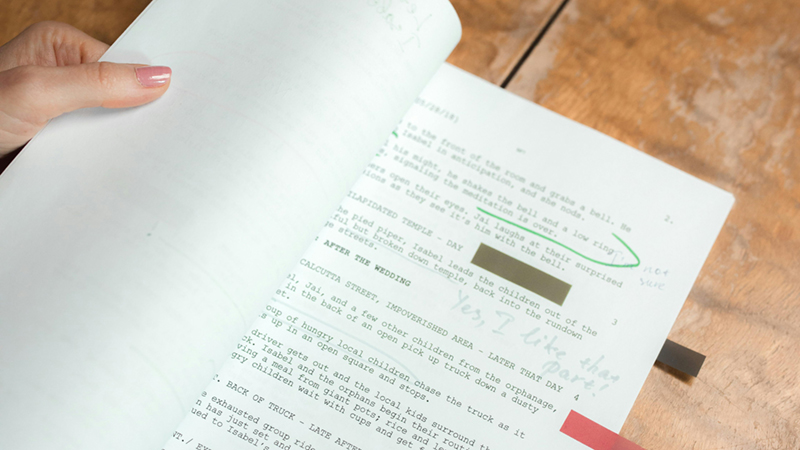 05/28/18)
2.
to the front of the room and grabs a bell. He
Isabel is anticipation, and she nods.
his might, he shakes the bell and a low ring
, signaling the meditation is over.
ers open their eyes, Jai laughs at their surprised
ions as they see it's him with the bell.
ILAPIDATED TEMPLE - DAY
3
he pied piper, Isabel leads the children out of the
ful but broken down temple, back into the rundown
e streets.
AFTER THE WEDDING
Yes, I like that
Part!
CALCUTTA STREET, IMPOVERISHED AREA - LATER THAT DAY
4
l, Jai, and a few other children from the orphanage,
in the back of an open pick up truck down a dusty
et.
oup of hungry local children chase the truck as it
s up in an open square and stops.
driver gets out and the local kids surround the
ck. Isabel and the orphans begin their routine
ving a meal from giant pots; rice and le
gry children wait with cups and get f
. BACK OF TRUCK - LATE AFTE
e exhausted group ride
n has just set and
ued to Isabel's
NT./ EX